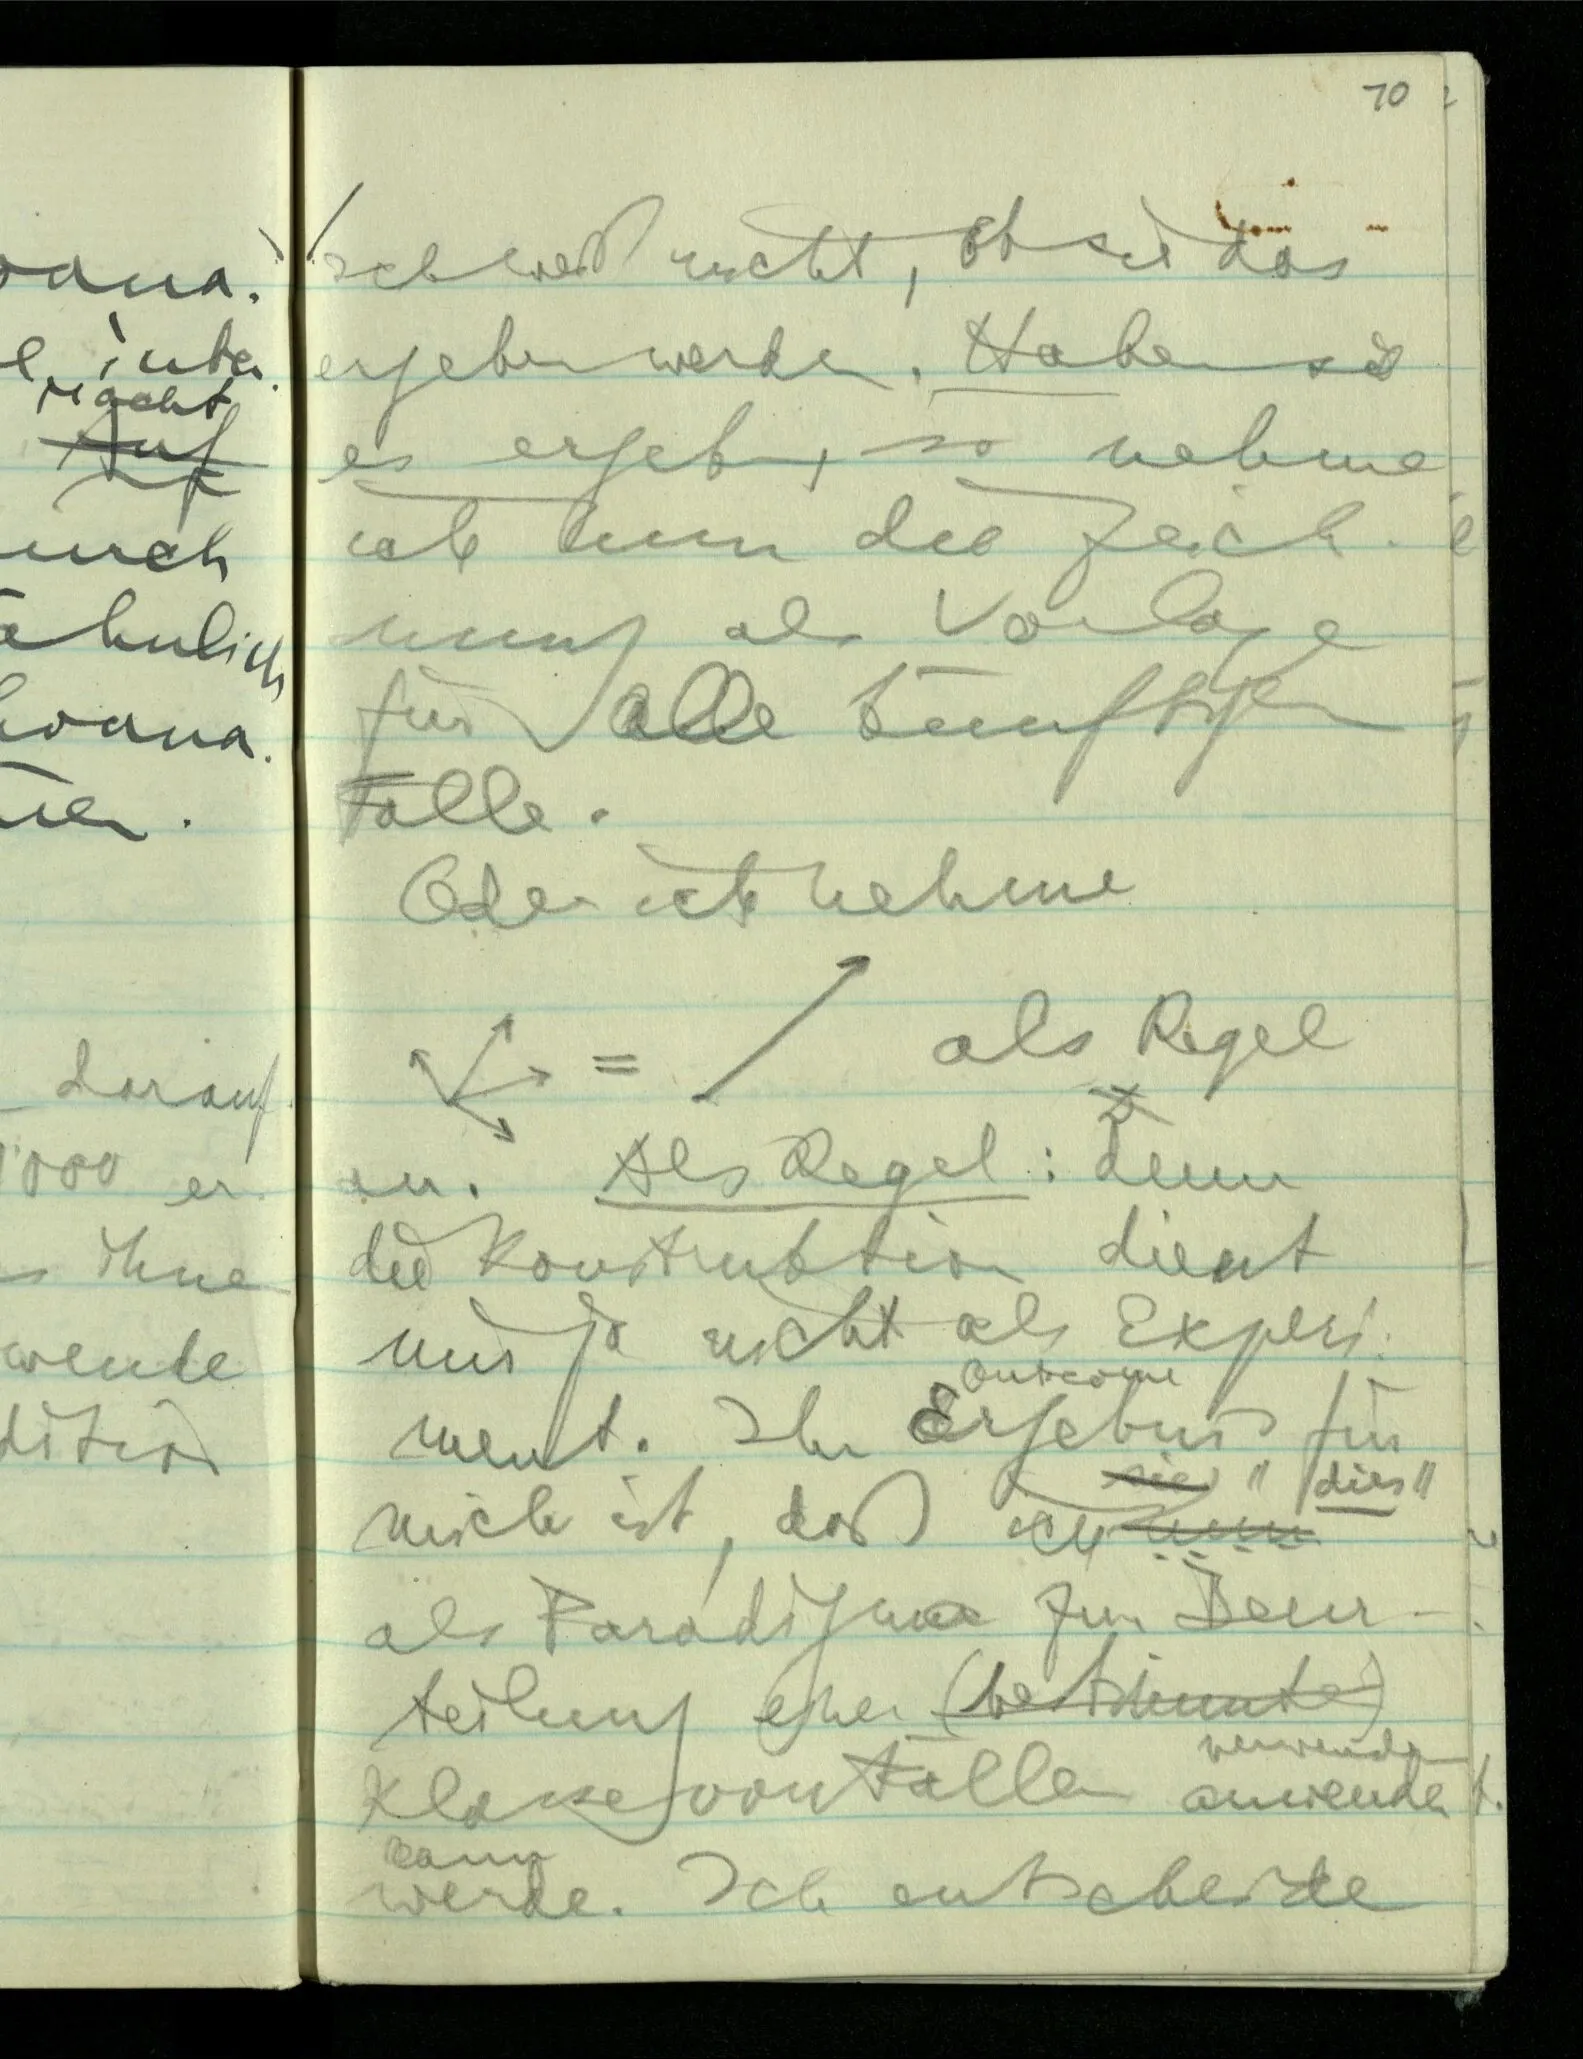 70
oana.
e inter.
macht
Auf
urch
ähnlich
oana.
darauf
1000 er-
ihne
wende
dition
ich weiß nicht, ob sie das
ergeben werden. Haben sie
es ergeben, so nehme
ich nun die Zeich-
nung als Vorlage
für alle künftigen
Fälle.
Oder ich nehme
= als Regel
an. Als Regel: denn
die Konstruktion dient
uns ja nicht als Experi-
ment. Ihr Ergebnis outcome für
mich ist, daß ich nun sie "dies"
als Paradigma zur Beur-
teilung einer (bestimmten)
Klasse von Fällen anwenden verwenden
werde. kann Ich entscheide